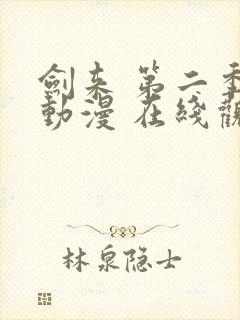 劍来 第二季
動漫 在綫觀
林泉隐士